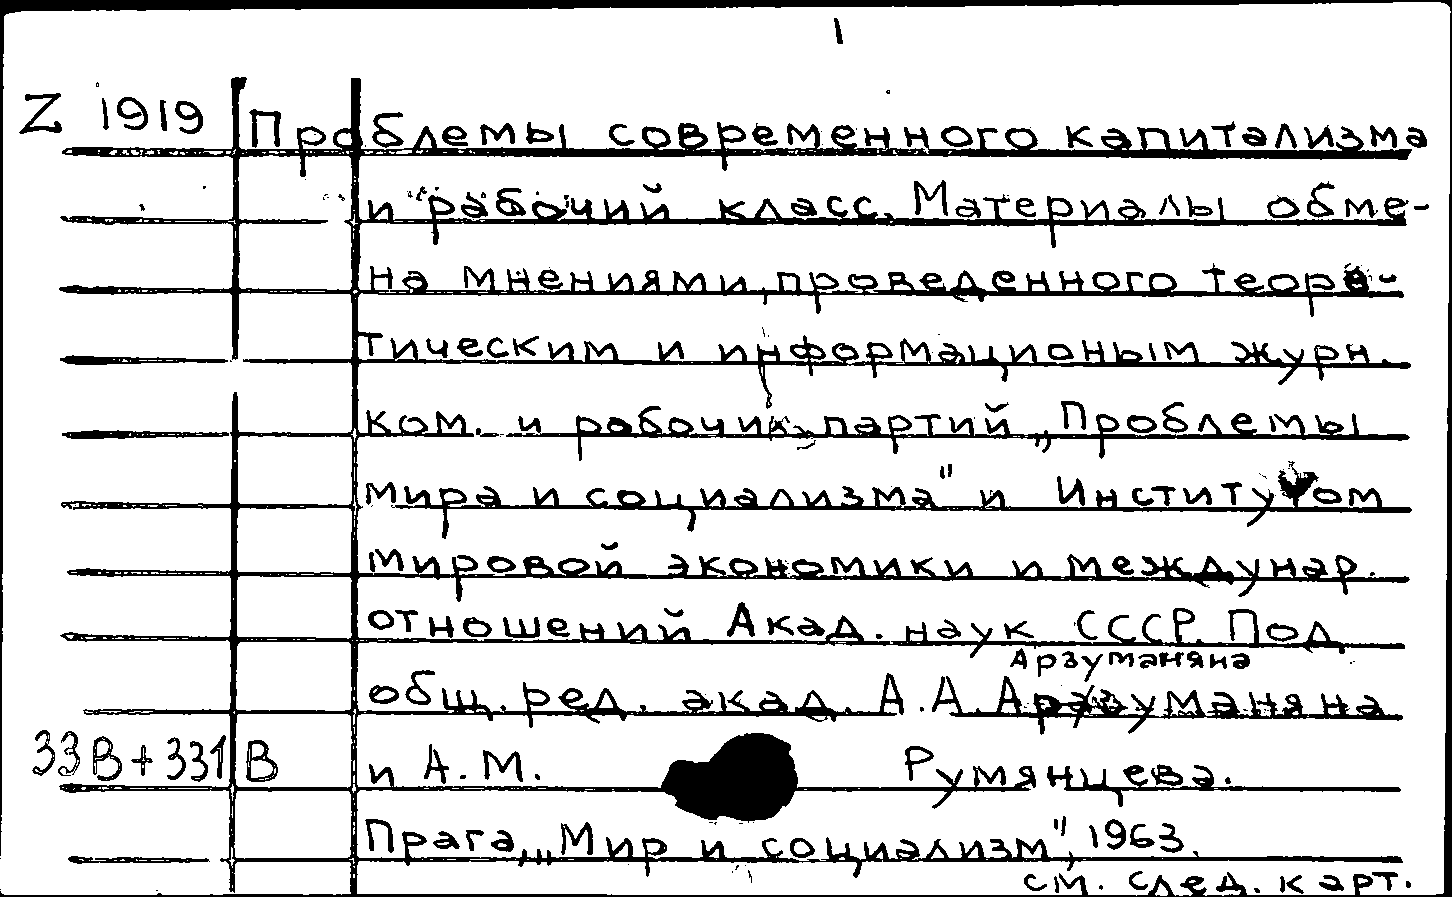 1
Z 1919 Проблемы современного капитализма
и рабочий класс. Материалы обме-
на мнениями, проведенного теоре-
тическим и информационым журн.
ком. и рабочих партий „Проблемы
мира и социализма" и Институтом
мировой экономики и междунар.
отношений Акад. наук СССР. Под
Арзуманяна
общ. ред. акад. А.А.
33В+331В и А.М. Румянцева.
Прага, „Мир и социализм", 1963.
см. след. карт.